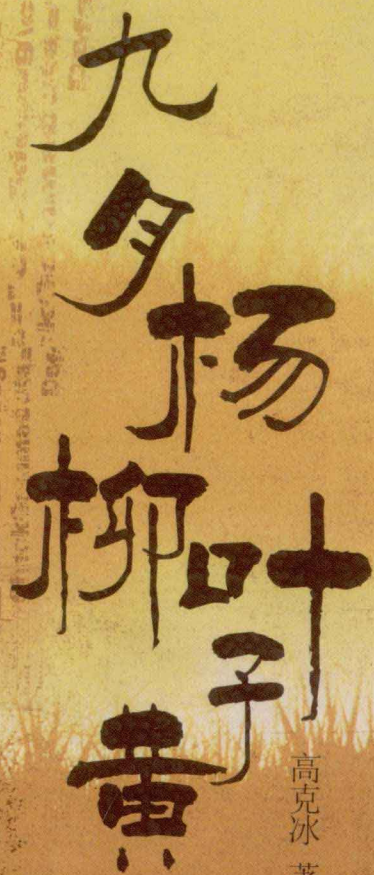 九月杨柳叶子黄
高克冰 著